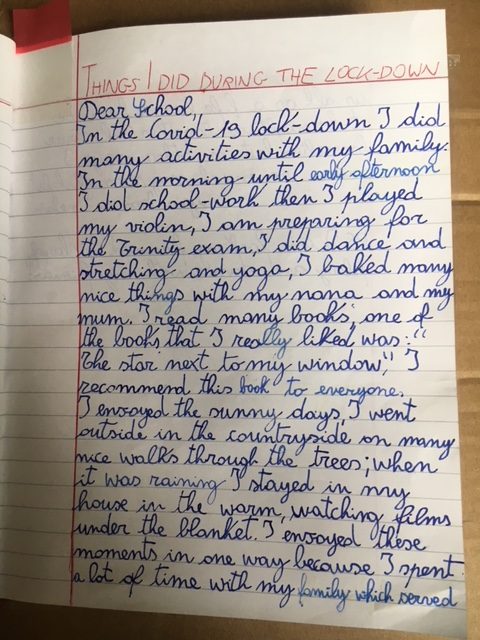 THINGS I DID DURING THE LOCK-DOWN
Dear School,
In the Covid-19 lock-down I did
many activities with my family.
In the morning until early afternoon
I did school-work then I played
my violin, I am preparing for
the Trinity exam, I did dance and
stretching and yoga, I baked many
nice things with my nana and my
mum. I read many books, one of
the books that I really liked was: "
The star next to my window", I
recommend this book to everyone.
I enjoyed the sunny days, I went
outside in the countryside on many
nice walks through the trees; when
it was raining I stayed in my
house in the warm, watching films
under the blanket. I enjoyed these
moments in one way because I spent
a lot of time with my family which served